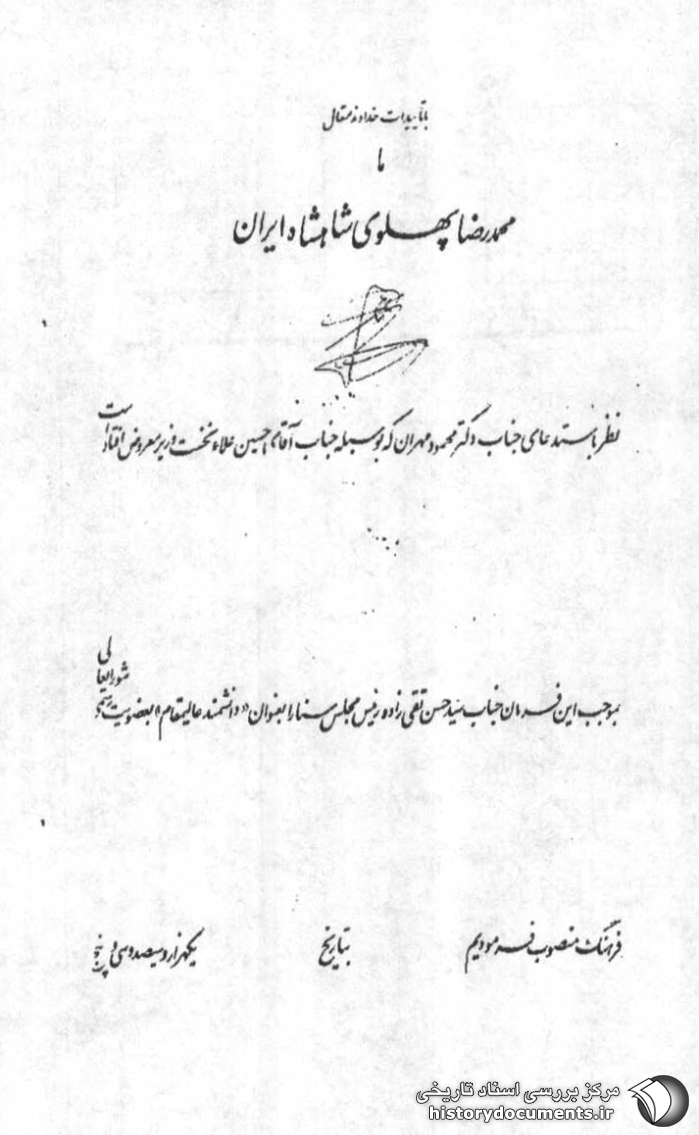 با تأییدات خداوند متعال
ما
محمدرضا پهلوی شاهنشاه ایران
نظر باستدعای جناب دکتر محمود مهران که بوسیله جناب آقای حسین علاء نخست وزیر معروض افتاده است
بموجب این فرمان جناب سید حسن تقی زاده رئیس مجلس سنا را بعنوان «دانشمند عالیمقام» بعضویت شورایعالی
فرهنگ منصوب فرمودیم بتاریخ یکهزار و سیصد و سی و پنج
مرکز بررسی اسناد تاریخی
historydocuments.ir